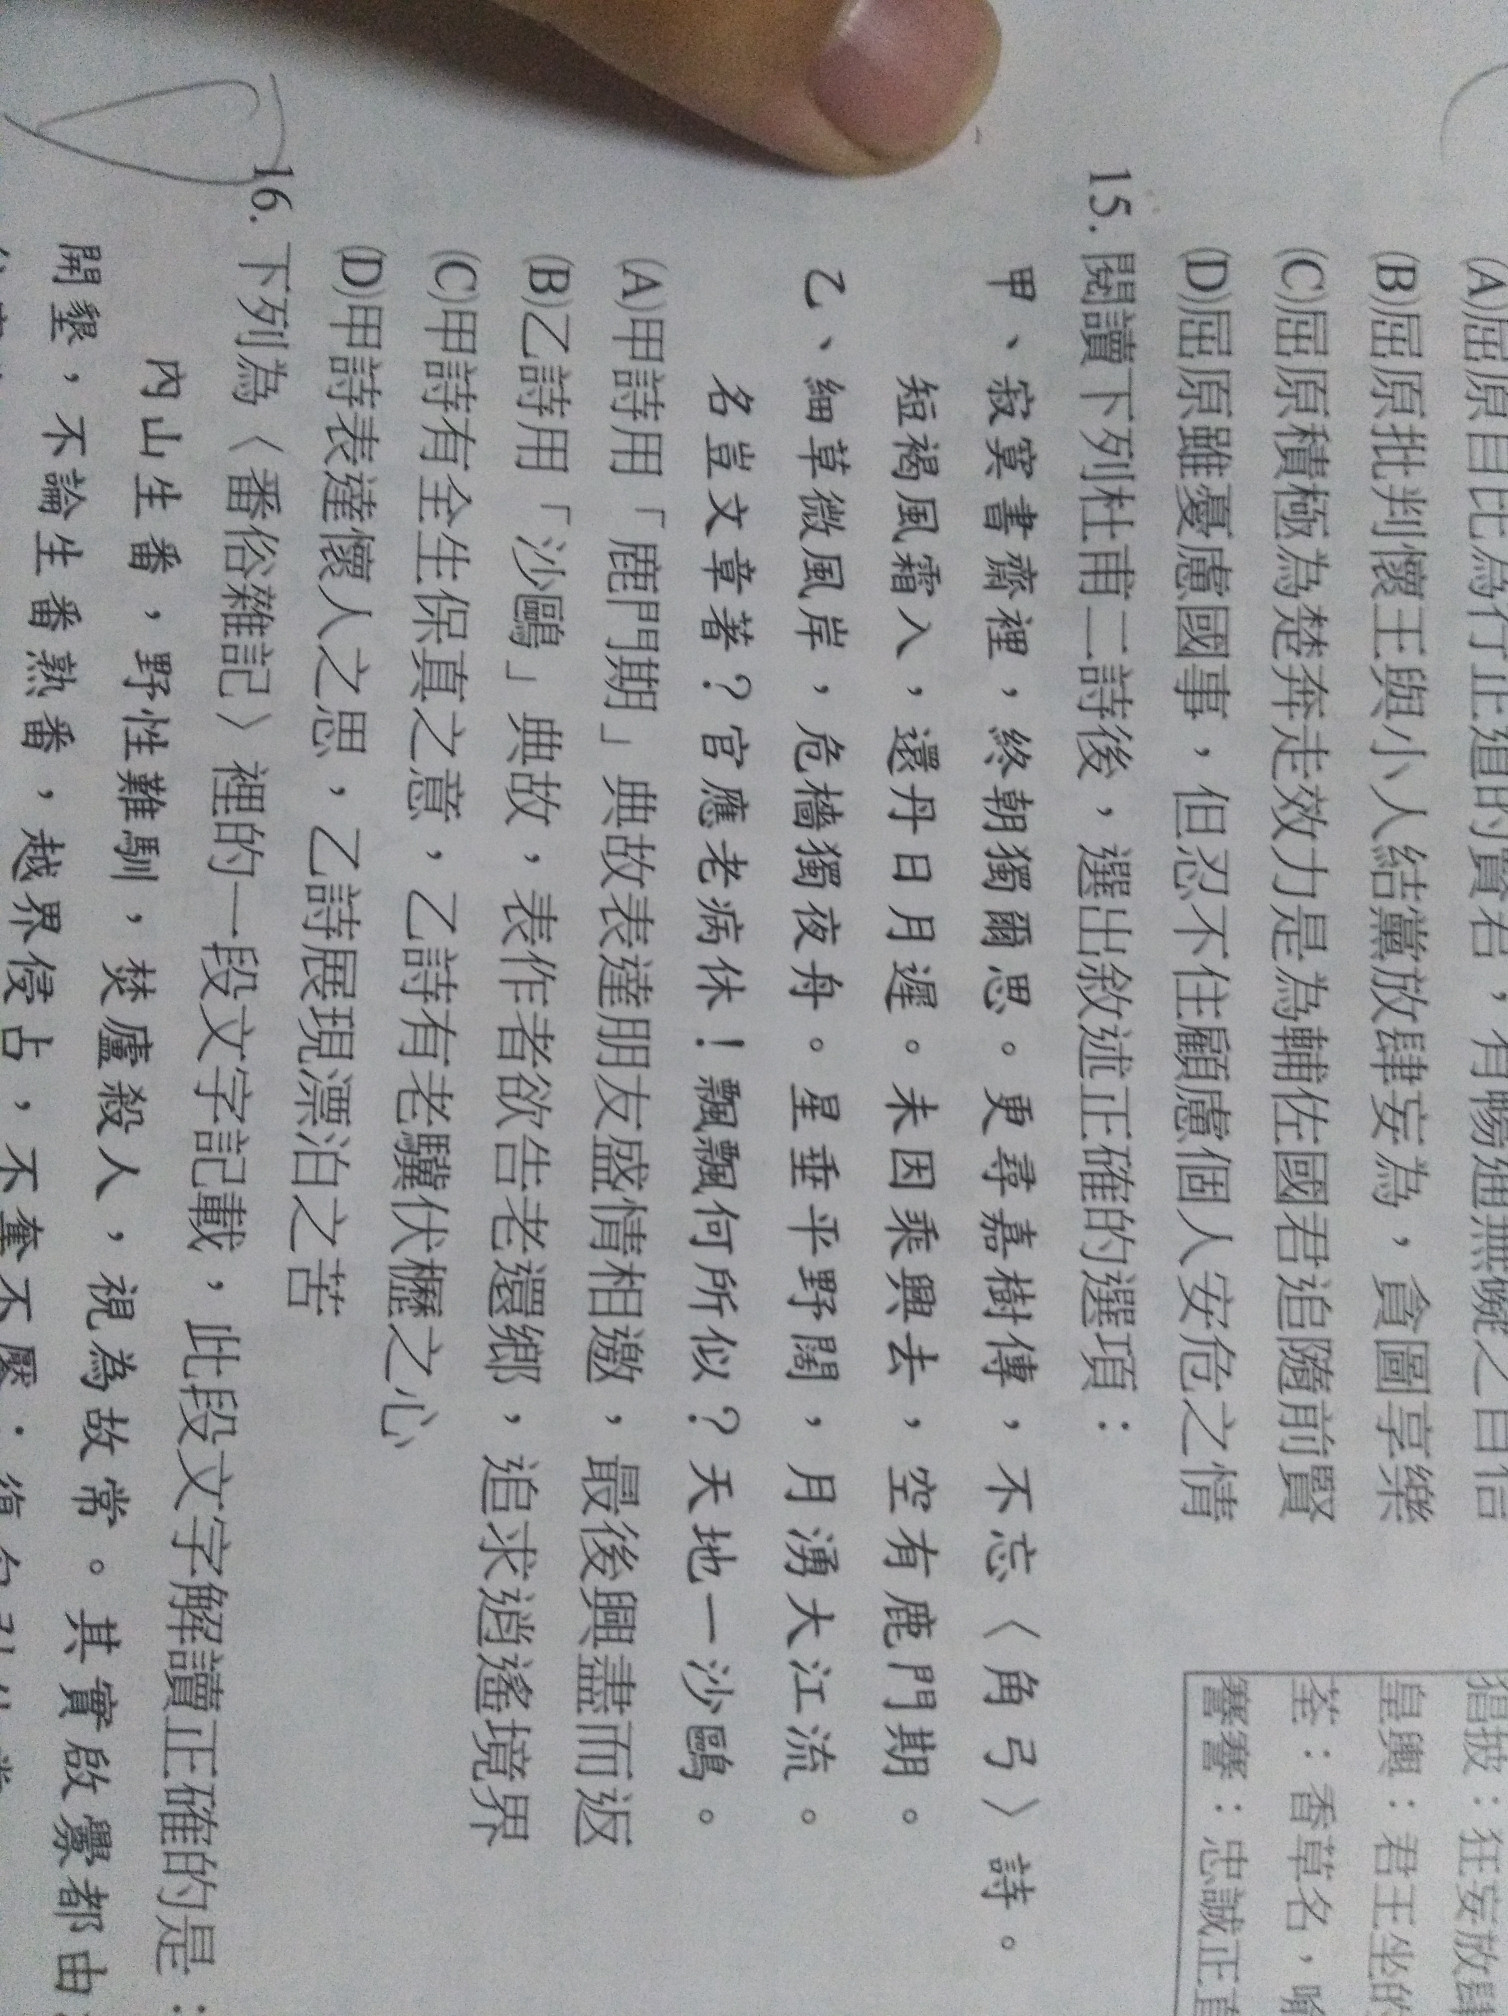 (A)屈原自比為行正道的賢君,有暢通無礙之自信
(B)屈原批判懷王與小人結黨放肆妄為,貪圖享樂
(C)屈原積極為楚奔走效力是為輔佐國君追隨前賢
(D)屈原雖憂慮國事,但忍不住顧慮個人安危之情
猖披:狂妄放肆
皇輿:君王坐的
荃:香草名,喻
謇謇:忠誠正直
15. 閱讀下列杜甫二詩後,選出敘述正確的選項:
甲、寂寞書齋裡,終朝獨爾思。更尋嘉樹傳,不忘〈角弓〉詩。
短褐風霜入,還丹日月遲。未因乘興去,空有鹿門期。
乙、細草微風岸,危檣獨夜舟。星垂平野闊,月湧大江流。
名豈文章著?官應老病休!飄飄何所似?天地一沙鷗。
(A)甲詩用「鹿門期」典故表達朋友盛情相邀,最後興盡而返
(B)乙詩用「沙鷗」典故,表作者欲告老還鄉,追求逍遙境界
(C)甲詩有全生保真之意,乙詩有老驥伏櫪之心
(D)甲詩表達懷人之思,乙詩展現漂泊之苦
16. 下列為〈番俗雜記〉裡的一段文字記載,此段文字解讀正確的是:
內山生番,野性難馴,焚廬殺人,視為故常。其實啟釁都由
開墾,不論生番熟番,越界侵占,不奪不饜;復勾引